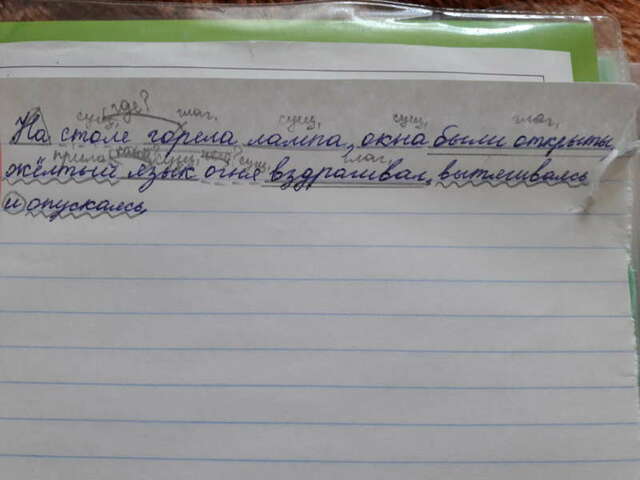 где?
сущ. глаг. сущ. сущ. глаг.
На столе горела лампа, окна были открыты,
прилаг. сущ. сущ. глаг.
жёлтый язык огня вздрагивал, вытягиваясь
и опускаясь